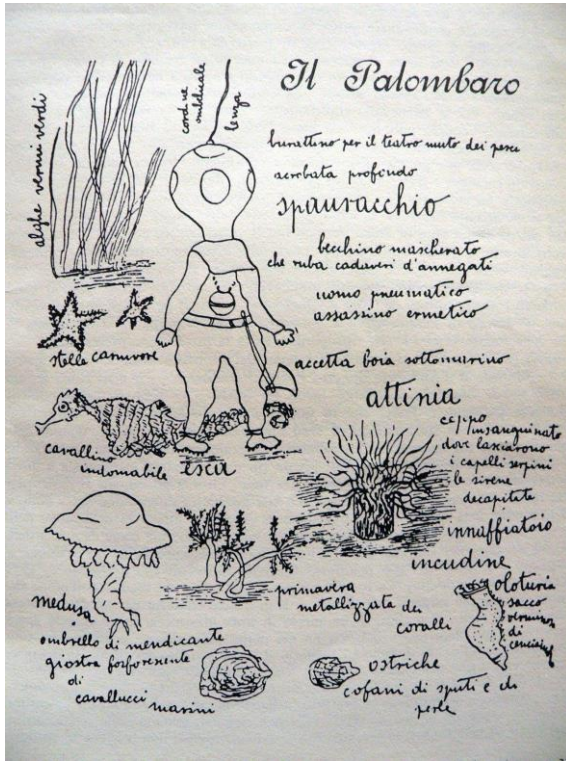 Il Palombaro
alghe vermi verdi
lenza
burattino per il teatro muto dei pesci
acrobata profondo
spauracchio
becchino mascherato
che ruba cadaveri d'annegati
uomo pneumatico
assassino ermetico
stelle carnivore
accetta boia sottomarino
attinia
ceppo
insanguinato
dove lasciarono
i capelli serpini
le sirene
decapitate
cavallino
indomabile
esca
innaffiatoio
incudine
medusa
ombrello di mendicante
giostra fosforescente
di
cavallucci
marini
primavera
metallizzata dei
coralli
oloturia
sacco
di
ostriche
cofani di sputi e di
perle